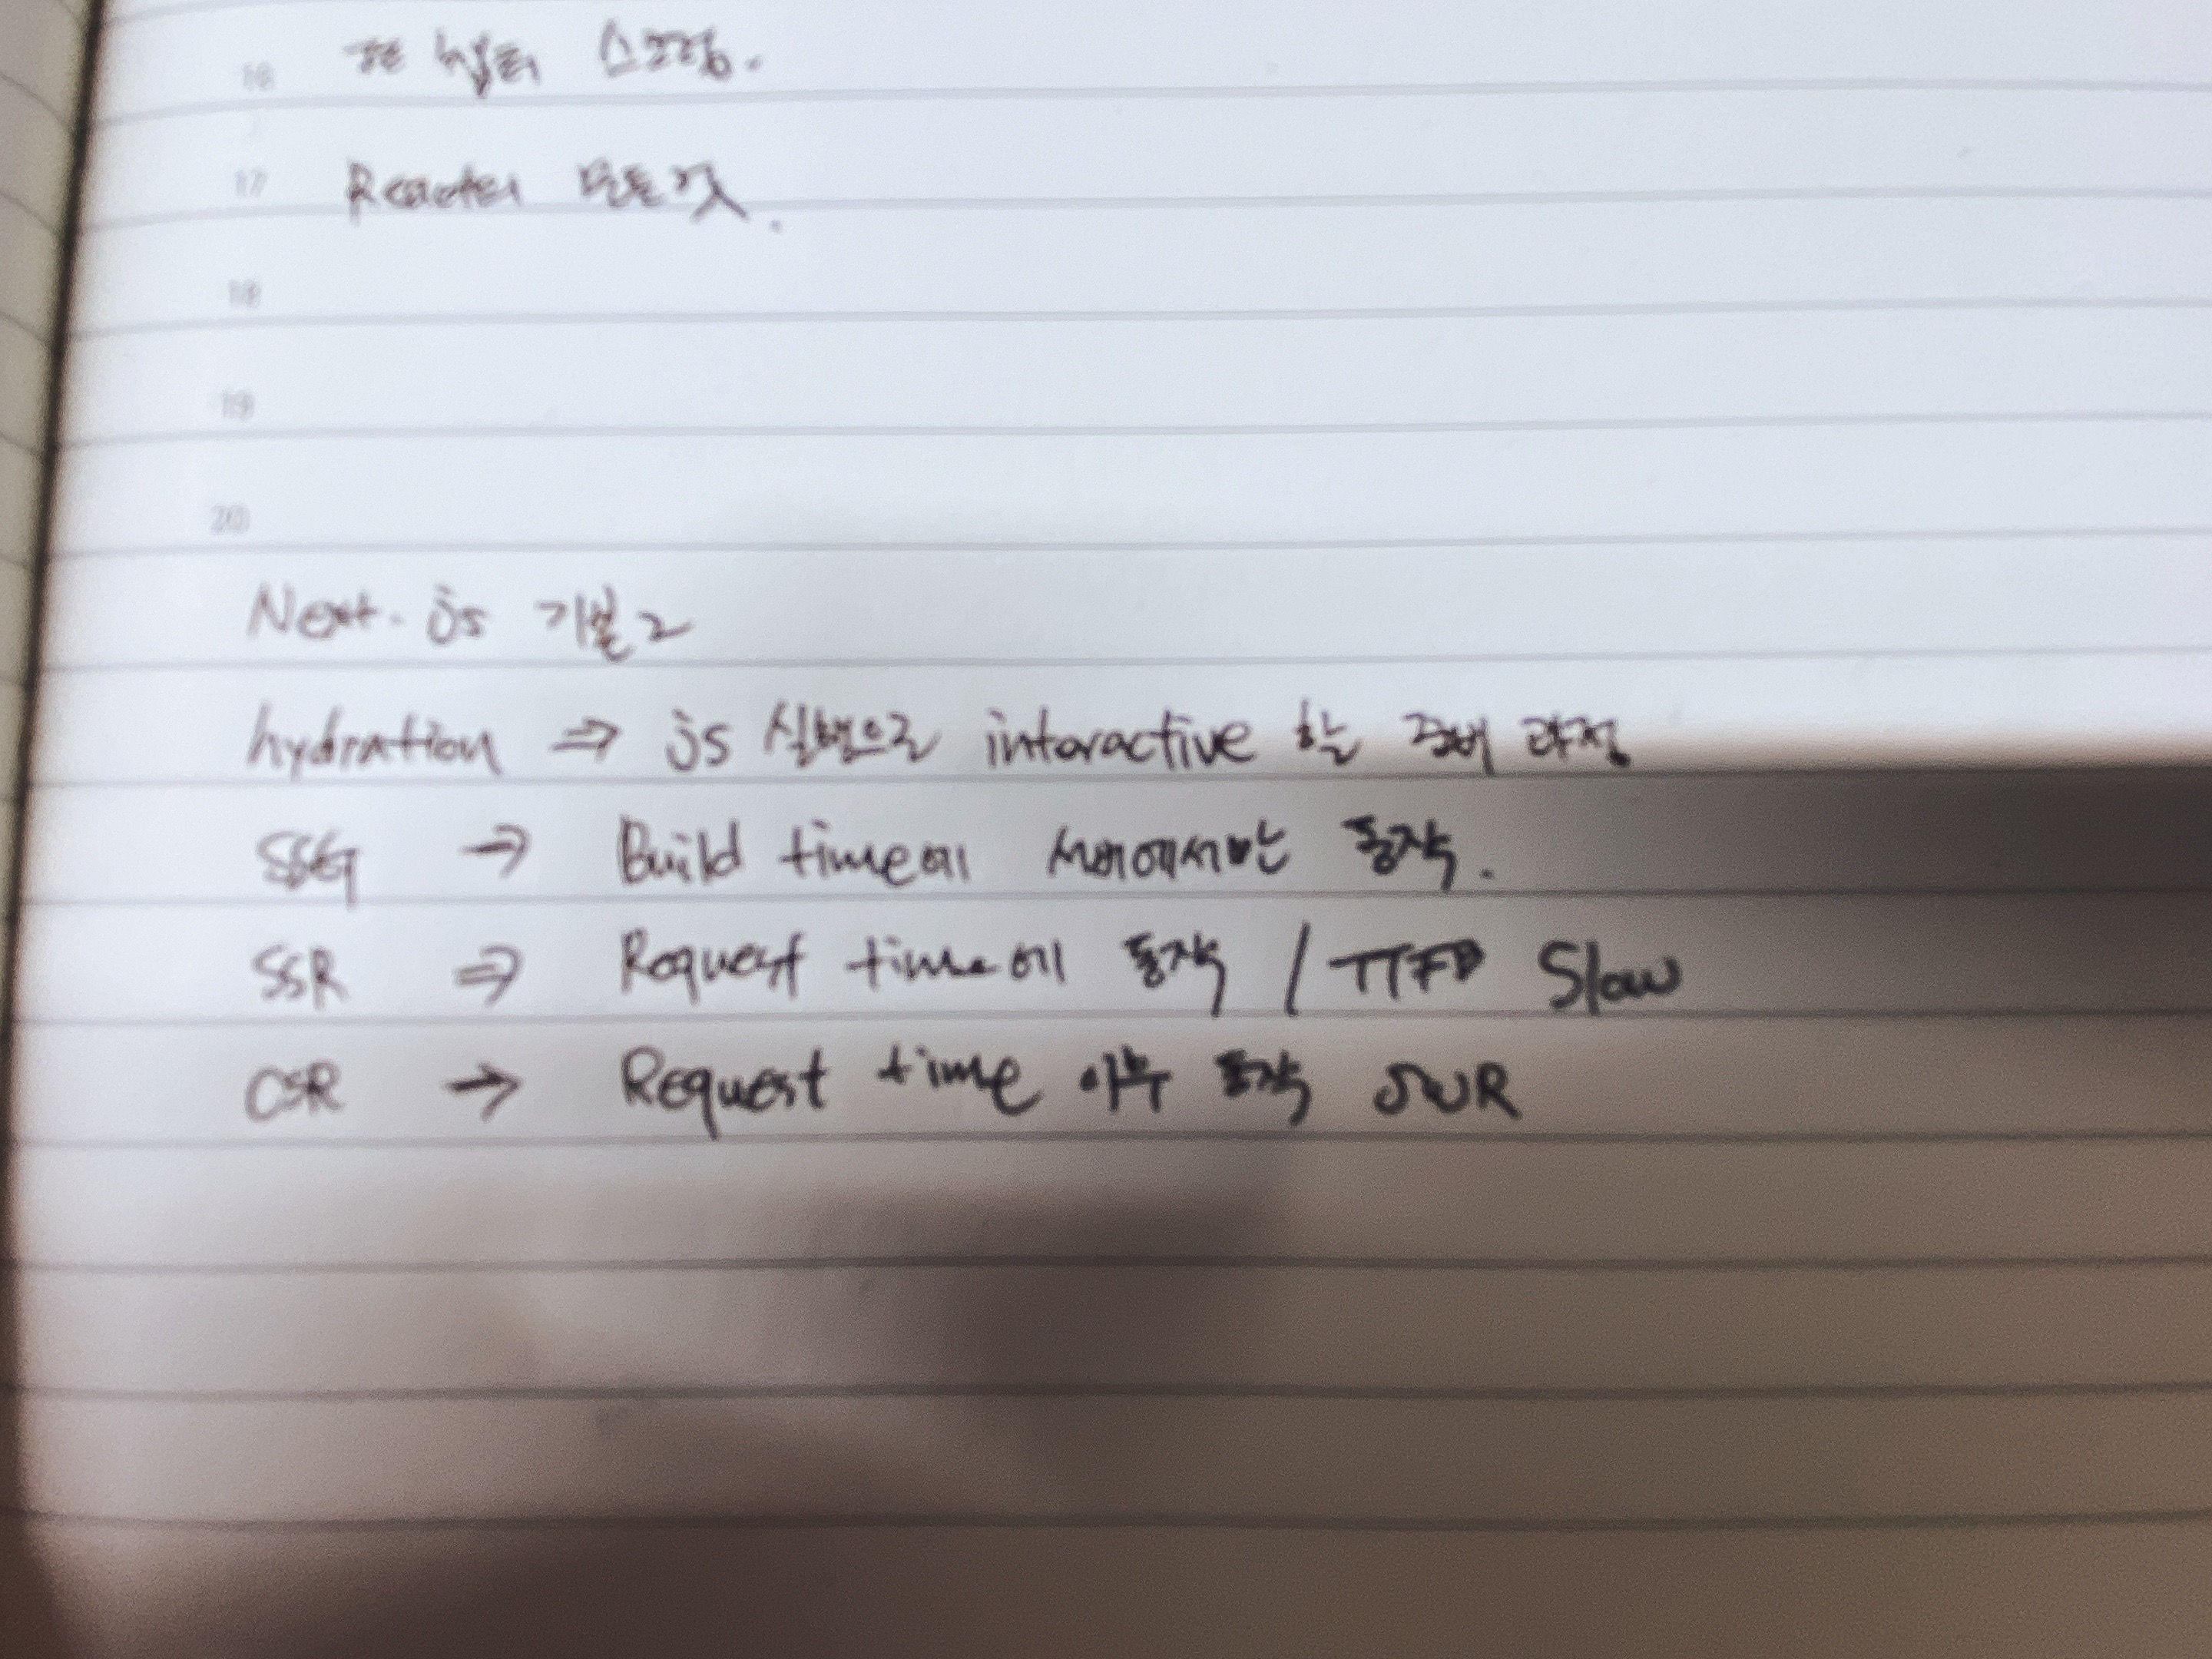 16
17 모든 것.
18
19
20
Next.js 기본 2
hydration ⇒ js 실행으로 interactive 할 준비 과정
SSG → Build time에 서버에서만 동작.
SSR ⇒ Request time에 동작 / Slow
CSR → Request time 이후 동작 SWR